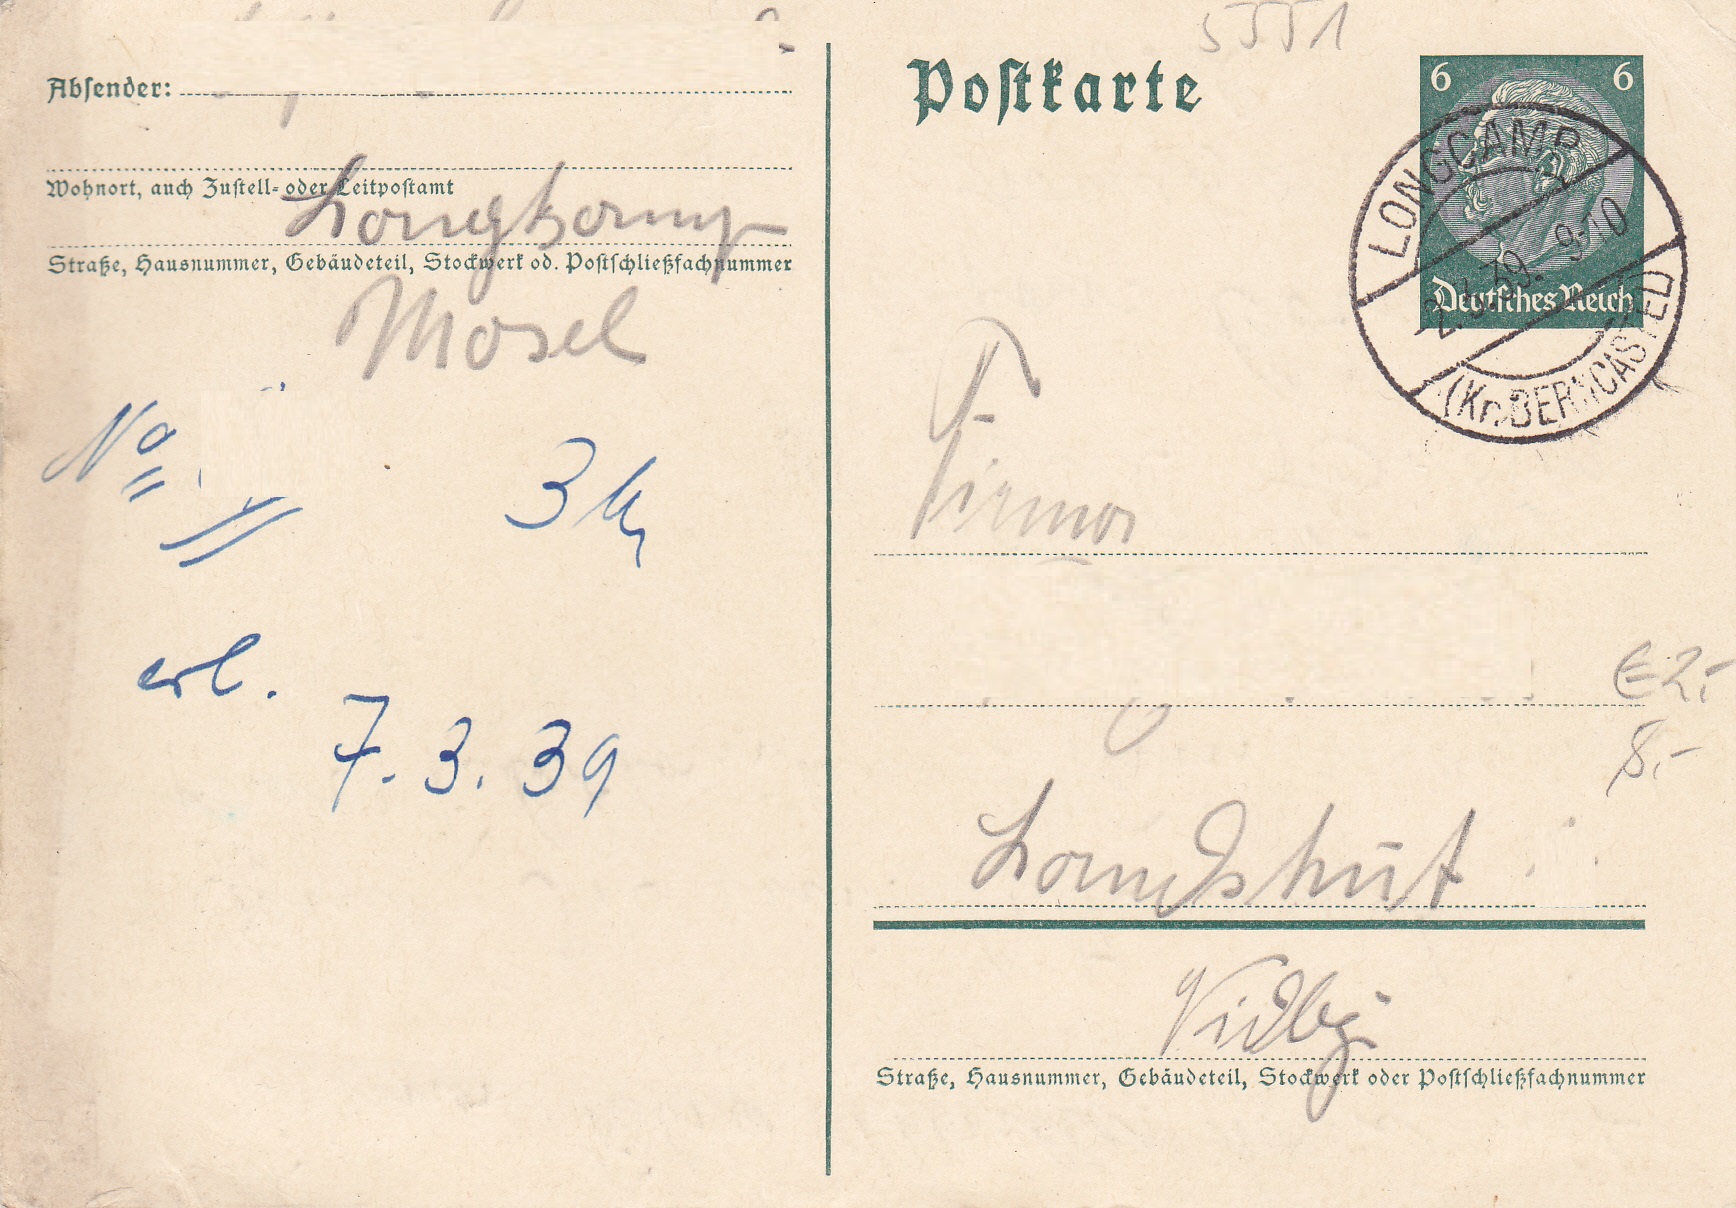 5551
Absender:
Wohnort, auch Zustell- oder Leitpostamt
Longkamp
Straße, Hausnummer, Gebäudeteil, Stockwerk od. Postschließfachnummer
Mosel
No
3
erl.
7.3.39
Postkarte
6 6
Deutsches Reich
LONGCAMP
2.3.39. 9-10
(Kr. BERNCASTEL)
Firma
€2,-
8,-
Landshut
Straße, Hausnummer, Gebäudeteil, Stockwerk oder Postschließfachnummer